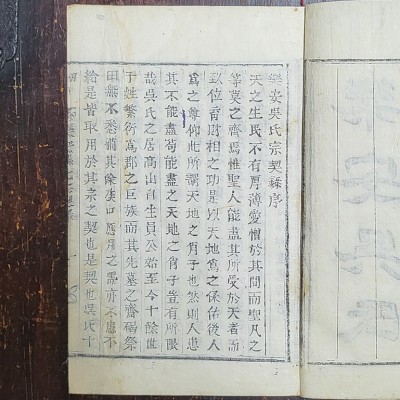 樂安吳氏宗契稧序
天之生民不有厚薄愛憎於其間而聖凡之
等莫之齊焉惟聖人能盡其所受於天者而
致位育財相之功是以天地爲之保佑後人
爲之尊仰此所謂天地之肖子也然則人患
其不能盡苟能盡之天地之肖子豈有所限
哉吳氏之居高出自生員公始至今十餘世
子姓繁衍爲郡之巨族而其先墓之齋碣祭
田無不悉備其
之需亦不患不
給是皆取用於其宗之契也是契也吳氏十